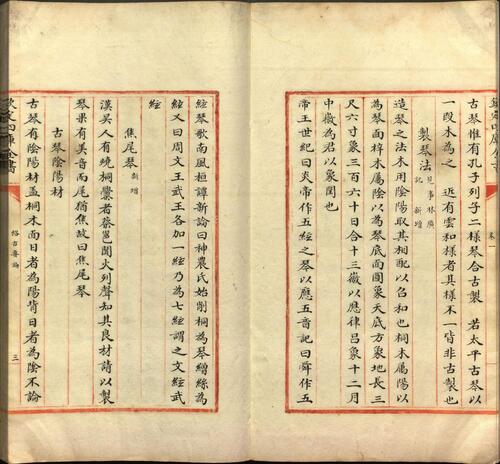 欽定四庫全書
卷一
古琴惟有孔子列子二樣琴合古製若太平古琴以
一段木為之 近有雲和樣者其樣不一皆非古製也
製琴法見事林廣記 新增
造琴之法木用陰陽取其相配以召和也桐木屬陽以
為琴面梓木屬陰以為琴底面圓象天底方象地長三
尺六寸象三百六十日合十三徽以應律呂象十二月
中徽為君以象閏也
帝王世紀曰炎帝作五絃之琴以應五音記曰舜作五
絃琴歌南風桓譚新論曰神農氏始削桐為琴繩絲為
絃又曰周文王武王各加一絃乃為七絃謂之文絃武
絃
焦尾琴新增
漢吳人有燒桐爨者蔡邕聞火列聲知其良材請以製
琴果有美音而尾猶焦故曰焦尾琴
古琴陰陽材
古琴有陰陽材盖桐木面日者為陽背日者為陰不論
欽定四庫全書
格古要論
三